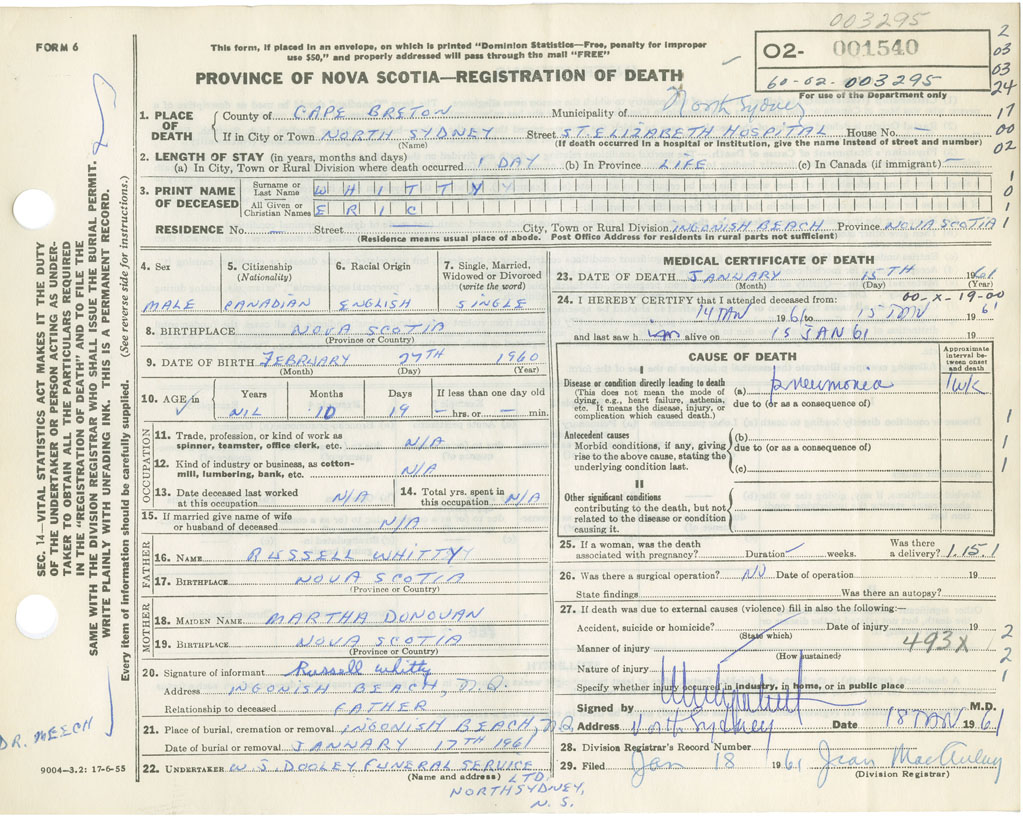 003295
FORM 6
This form, if placed in an envelope, on which is printed "Dominion Statistics—Free, penalty for improper
use $50," and properly addressed will pass through the mail "FREE"
O2- 001540
60-02-003295
For use of the Department only
PROVINCE OF NOVA SCOTIA—REGISTRATION OF DEATH
1. PLACE OF DEATH
County of CAPE BRETON Municipality of North Sydney
If in City or Town NORTH SYDNEY Street ST. ELIZABETH HOSPITAL House No. —
(Name) (If death occurred in a hospital or institution, give the name instead of street and number)
2. LENGTH OF STAY (in years, months and days)
(a) In City, Town or Rural Division where death occurred 1 DAY (b) In Province LIFE (c) In Canada (if immigrant) —
3. PRINT NAME OF DECEASED
Surname or Last Name WHITTY
All Given or Christian Names ERIC
RESIDENCE No. — Street — City, Town or Rural Division INGONISH BEACH Province NOVA SCOTIA
(Residence means usual place of abode. Post Office Address for residents in rural parts not sufficient)
4. Sex MALE
5. Citizenship (Nationality) CANADIAN
6. Racial Origin ENGLISH
7. Single, Married, Widowed or Divorced (write the word) SINGLE
8. BIRTHPLACE NOVA SCOTIA
(Province or Country)
9. DATE OF BIRTH FEBRUARY 27TH 1960
(Month) (Day) (Year)
10. AGE in Years Months Days If less than one day old
NIL 10 19 — hrs. or — min.
OCCUPATION
11. Trade, profession, or kind of work as spinner, teamster, office clerk, etc. N/A
12. Kind of industry or business, as cotton-mill, lumbering, bank, etc. N/A
13. Date deceased last worked at this occupation N/A
14. Total yrs. spent in this occupation N/A
15. If married give name of wife or husband of deceased N/A
FATHER
16. NAME RUSSELL WHITTY
17. BIRTHPLACE NOVA SCOTIA
(Province or Country)
MOTHER
18. MAIDEN NAME MARTHA DONOVAN
19. BIRTHPLACE NOVA SCOTIA
(Province or Country)
20. Signature of informant Russell Whitty
Address INGONISH BEACH,
Relationship to deceased FATHER
21. Place of burial, cremation or removal INGONISH BEACH,
Date of burial or removal JANUARY 17TH 1961
22. UNDERTAKER W. J. DOOLEY FUNERAL SERVICE
(Name and address) LTD.
NORTH SYDNEY,
N. S.
9004-3.2: 17-6-55
MEDICAL CERTIFICATE OF DEATH
23. DATE OF DEATH JANUARY 15TH 1961
(Month) (Day) (Year)
00-X-19-00
24. I HEREBY CERTIFY that I attended deceased from:
14 JAN 1961 to 15 JAN 1961
and last saw him alive on 15 JAN 61 19
CAUSE OF DEATH
Approximate interval between onset and death
I
Disease or condition directly leading to death (a) pneumonia 1 wk
(This does not mean the mode of dying, e.g., heart failure, asthenia, etc. It means the disease, injury, or complication which caused death.)
due to (or as a consequence of)
Antecedent causes
Morbid conditions, if any, giving rise to the above cause, stating the underlying condition last.
(b)
due to (or as a consequence of)
(c)
II
Other significant conditions contributing to the death, but not related to the disease or condition causing it.
25. If a woman, was the death associated with pregnancy? Duration — weeks. Was there a delivery? 1.15.1
26. Was there a surgical operation? NO Date of operation 19
State findings Was there an autopsy?
27. If death was due to external causes (violence) fill in also the following:—
Accident, suicide or homicide? Date of injury 19
(State which)
Manner of injury 493X
(How sustained)
Nature of injury
Specify whether injury occurred in industry, in home, or in public place
Signed by M.D.
Address North Sydney Date 18 JAN 1961
28. Division Registrar's Record Number
29. Filed Jan 18 1961 Jean MacAulay
(Division Registrar)
2
03
03
24
17
00
02
1
0
1
1
1
1
1
2
2
1
SEC. 14—VITAL STATISTICS ACT MAKES IT THE DUTY
OF THE UNDERTAKER OR PERSON ACTING AS UNDER-
TAKER TO OBTAIN ALL THE PARTICULARS REQUIRED
IN THE "REGISTRATION OF DEATH" AND TO FILE THE
SAME WITH THE DIVISION REGISTRAR WHO SHALL ISSUE THE BURIAL PERMIT.
WRITE PLAINLY WITH UNFADING INK. THIS IS A PERMANENT RECORD.
Every item of information should be carefully supplied. (See reverse side for instructions.)
DR. MEECH